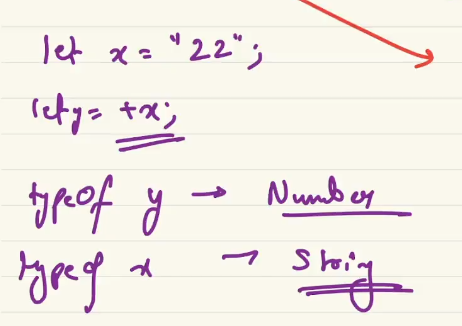 let x = "22";
let y = +x;
typeof y → Number
typeof x → String